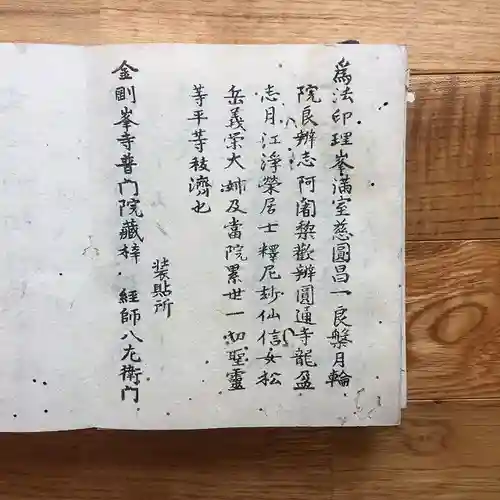 為法印理峯滿室慈圓昌一良盤月輪
院良辦志阿闍梨歡辦圓通寺龍盈
志月江淨榮居士釋尼妙仙信女松
岳義榮大姉及當院累世一切聖靈
等平等抜濟也
装貼所
金剛峯寺普門院藏梓 經師八左衛門